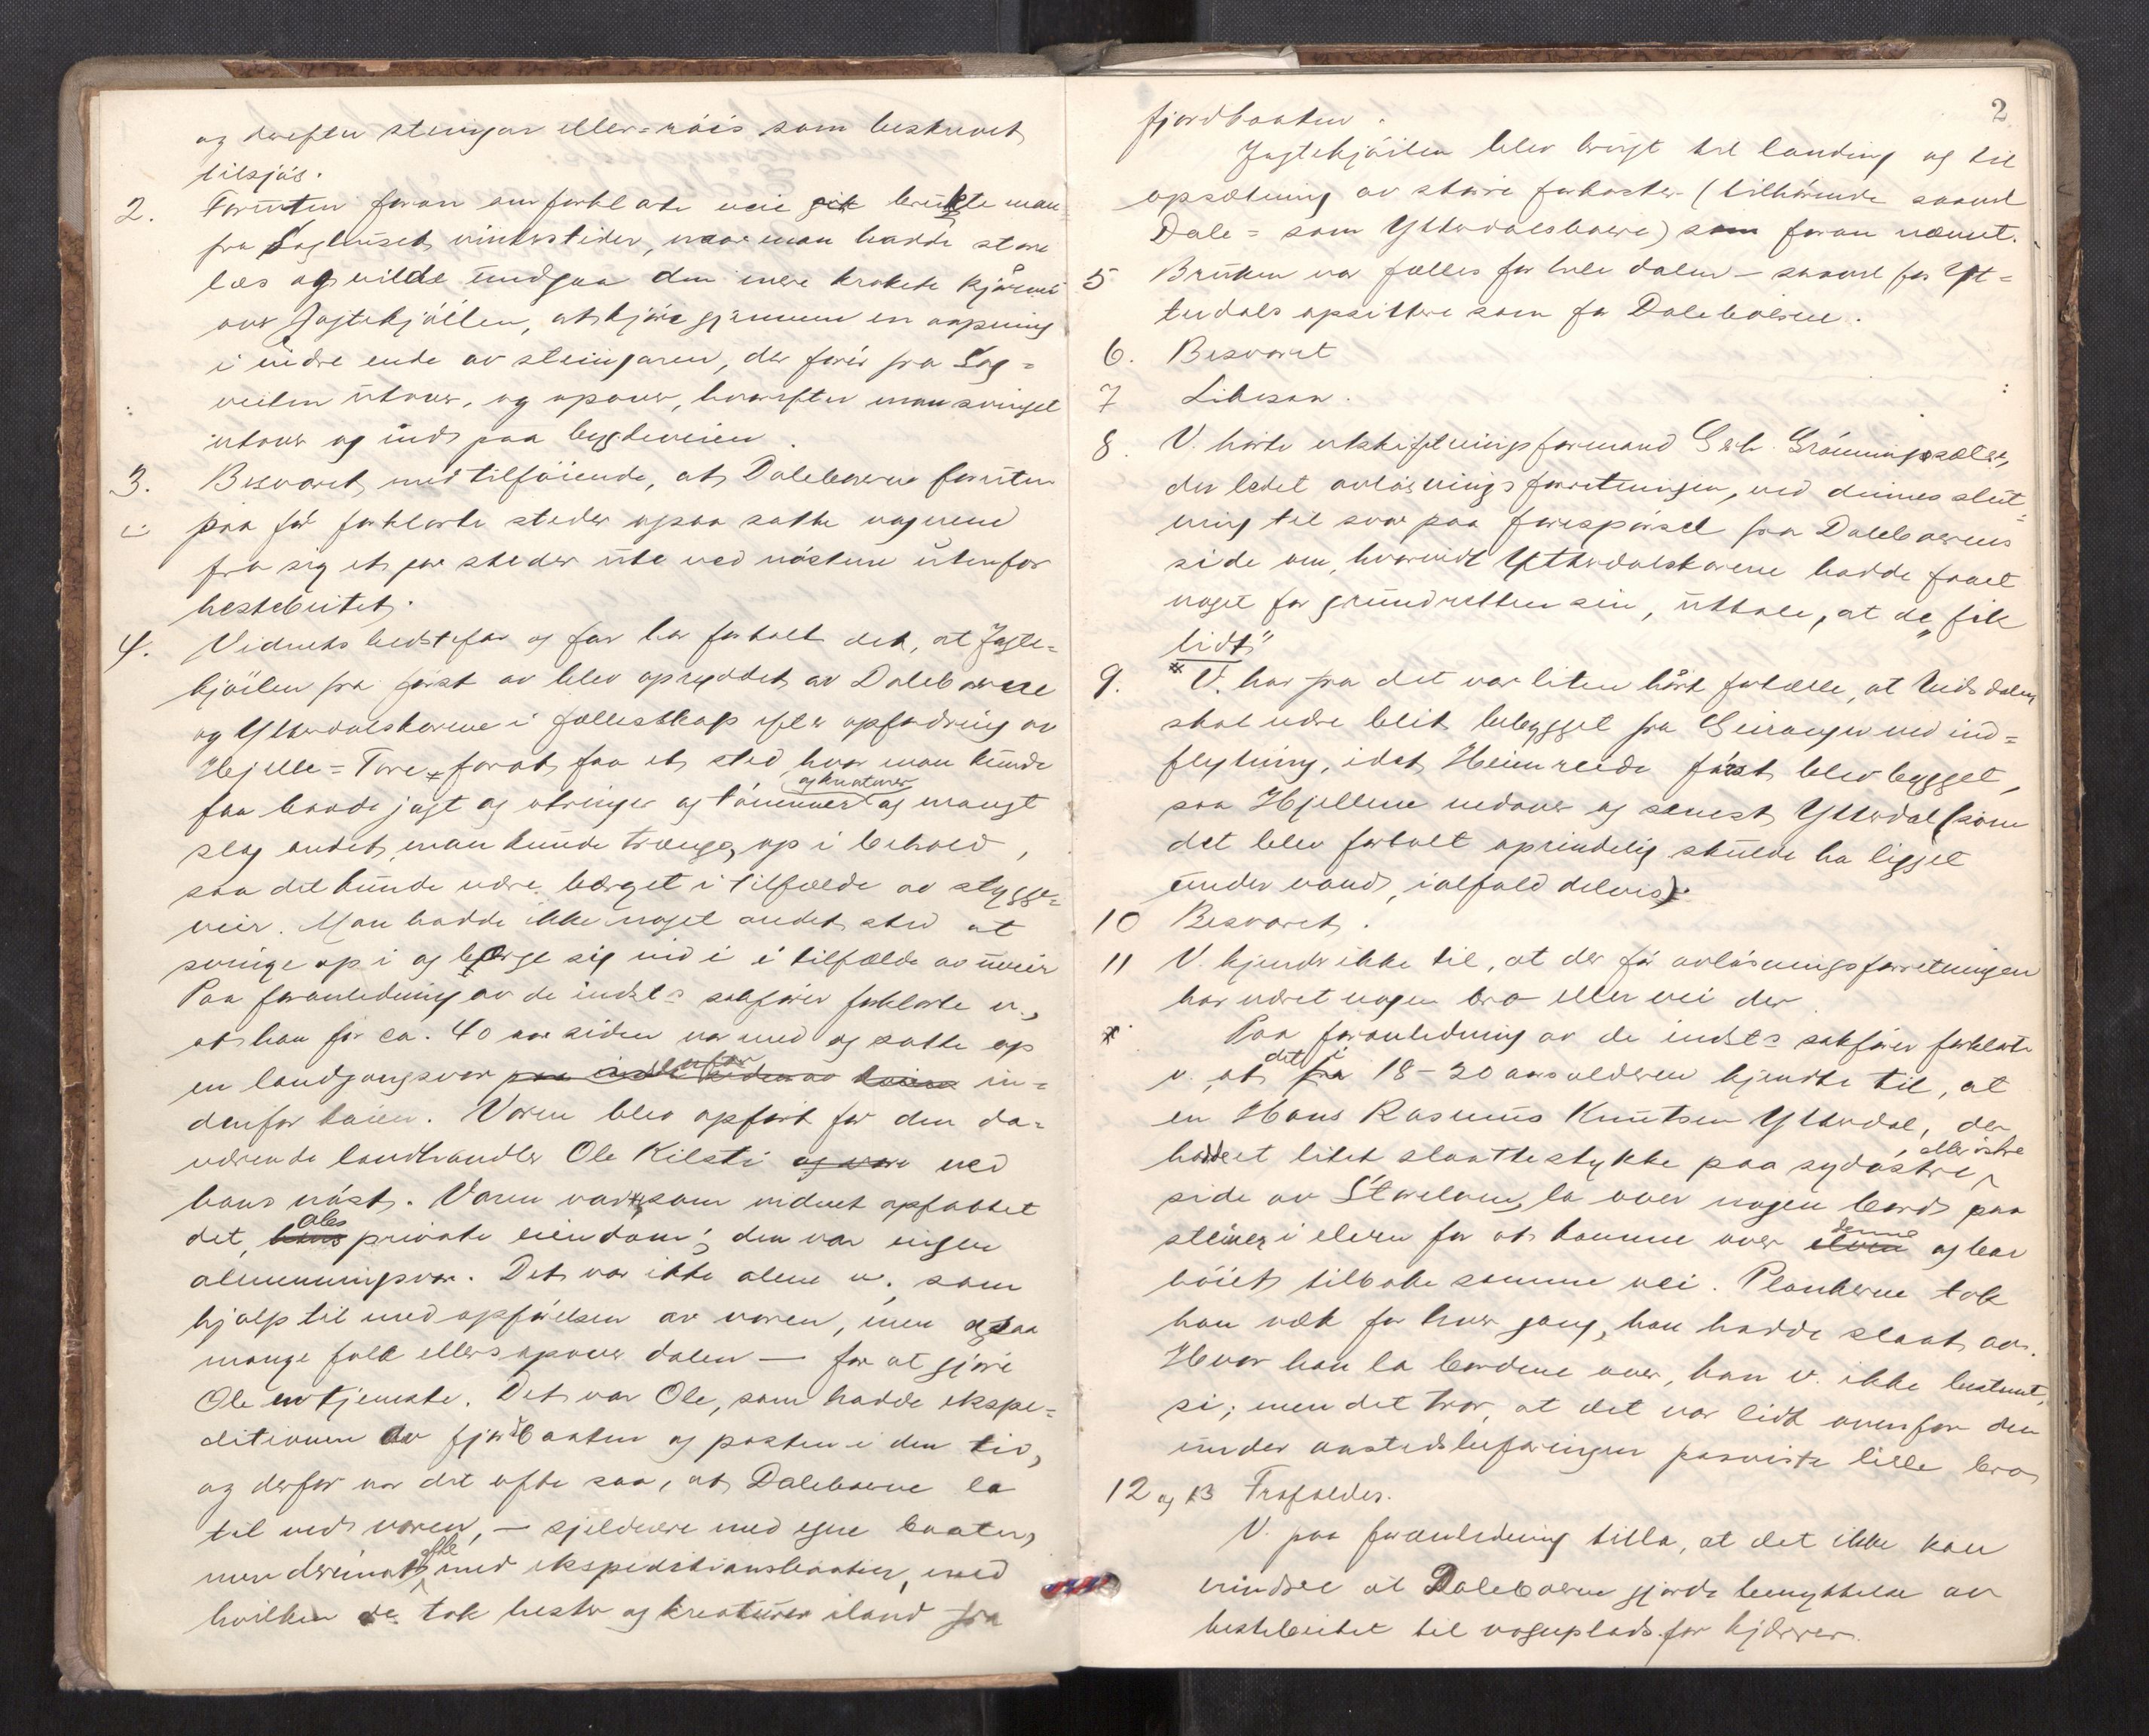 og derefter steingar eller röis som beskrevet
tilsjös.
2. Foruten foran omforklarte vei brukte man
fra Saghuset vinterstider, naar man hadde store
læs og vilde undgaa den mere krokete kjörevei
over Jagtekjöilen, at kjöre gjennem en aapning
i indre ende av steingaren, der förer fra Sag=
veiten utover, og opover, hvorefter man svinget
utover og ind paa bygdeveien.
3. Besvaret, med tilföiende, at Daleboerne foruten
paa för forklarte steder ogsaa satte vognene
fra sig et par steder ute ved nöstene utenfor
hestebeitet.
4. Vidnets bedstefar og far har fortalt det, at Jagte=
kjöilen fra först av blev opryddet av Daleboerne
og Ytterdalskarene i fællesskap efter opfordring av
Hjelle=Tore, forat faa et sted, hvor man kunde
og kreaturer
faa baade jagt og otringer og tömmer og mangt
slag andet, man kunde trænge, op i behold,
saa det kunde være berget i tilfælde av stygge=
veir. Man hadde ikke noget andet sted at
svinge op i og berge sig ind i i tilfælde av uveir
Paa foranledning av de indst.s sakförer forklarte v.,
at han for ca. 40 aar siden var med og satte op
en landgangsvor in=
denfor kaien. Voren blev opfört for den da=
værende landhandler Ole Kilsti og vare ved
hans nöst. Voren var, som vidnet opfattet
det, Oles private eiendom; den var ingen
almenningsvor. Det var ikke alene v., som
hjalp til med opförelsen av voren, men ogsaa
mange folk ellers opover dalen — for at gjöre
Ole en tjeneste. Det var Ole, som hadde ekspe=
ditionen av fjordbaaten og posten i den tid,
og derfor var det ofte saa, at Daleboerne la
til ved voren, — sjeldnere med egne baater,
men derimot ofte med ekspeditionsbaaten, med
hvilken de tok hester og kreaturer iland fra
2
fjordbaaten.
Jagtekjöilen blev brugt til landing og til
opsætning av större farkoster (tilhörende saavel
Dale= som Ytterdalsboere) som foran nævnt.
5 Bruken var fælles for hele dalen — saavel for Yt=
terdals opsittere som for Daleboerne.
6. Besvaret
7 Likesaa.
8. V. hörte utskiftningsformand Gröningsæter,
der ledet avlösningsforretningen, ved dennes slut=
ning til svar paa forespörsel fra Daleboernes
side om, hvorvidt Ytterdalskarene hadde faaet
noget for grundretten sin, uttale, at de fik
"lidt"
9. * V. har fra det var liten hört fortælle, at Eidsdalen
skal være blit bebygget fra Geiranger ved ind=
flytning, idet Heimreede först blev bygget,
saa Hjellene nedover og senest Ytterdal (som
det blev fortalt oprindelig skulde ha ligget
under vand, ialfald delvis).
10 Besvaret.
11 V. kjender ikke til, at der för avlösningsforretningen
har været nogen bro eller vei der
* Paa foranledning av de indst.s sakförer forklarte
v., at det i 18-20 aarsalderen kjendte til, at
en Hans Rasmus Knutsen Ytterdal, der
eller östre
hadde et litet slaattestykke paa sydöstre
side av Storelven, la over nogen bord paa
steiner i elven for at komme over elven denne og bar
höiet tilbake samme vei. Plankerne tok
han væk for hver gang, han hadde slaat av.
Hvor han la bordene over, kan v. ikke bestemt
si; men det tror, at det var lidt ovenfor den
under aastedsbefaringen paaviste lille bro
12 og 13 Frafaldes.
V. paa foranledning tilla, at det ikke kan
mindes at Daleboerne gjorde benyttelse av
hestebeitet til vognplads for kjærrer.